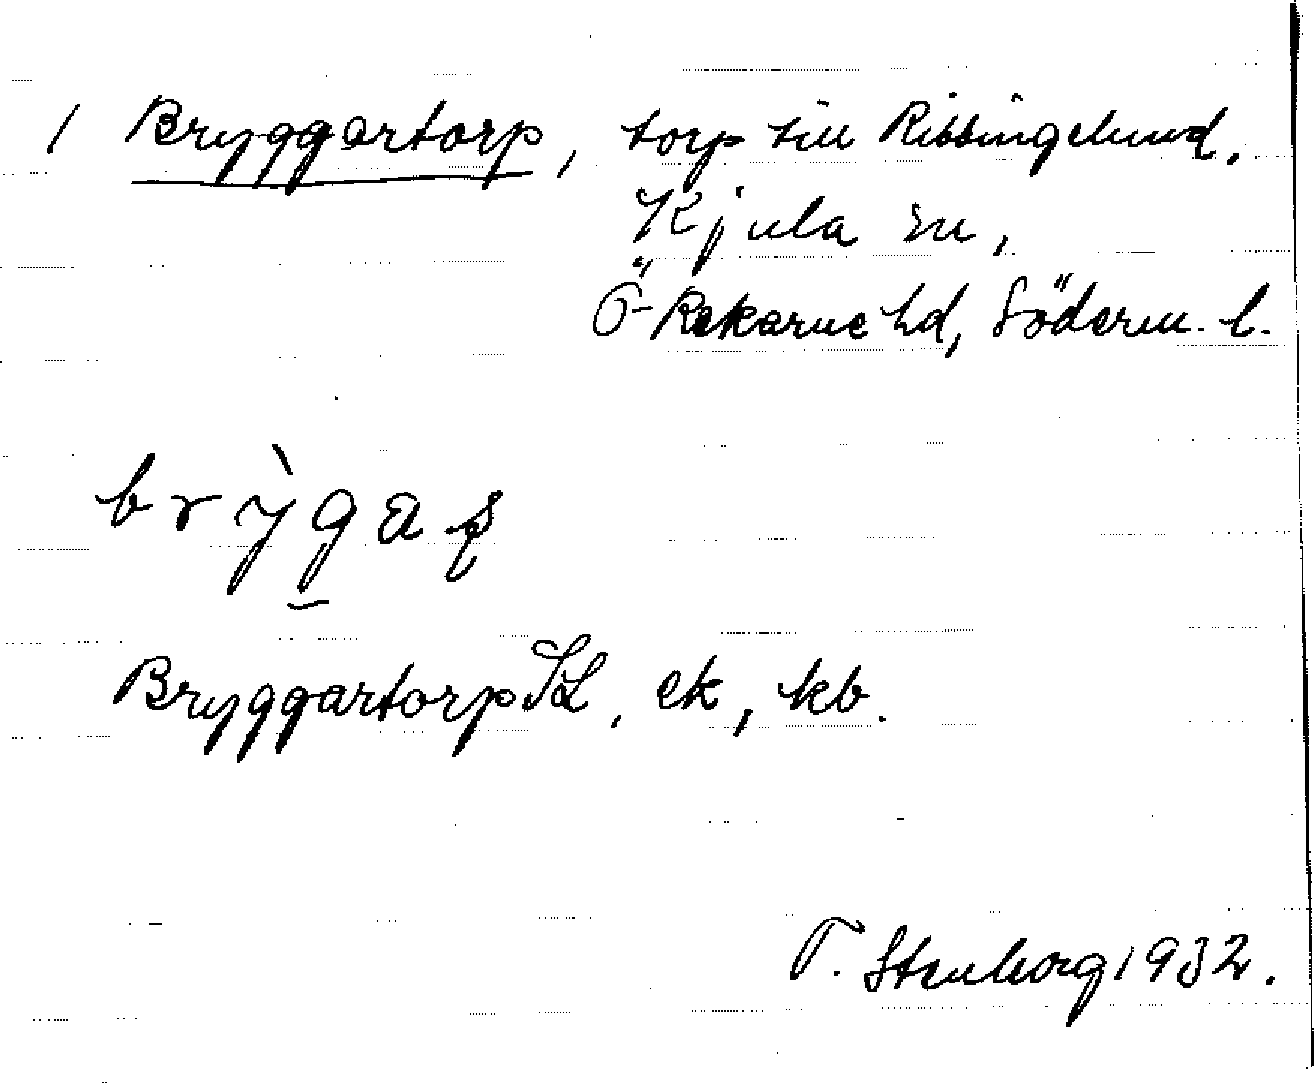 1 Bryggartorp, torp till Ribbingelund.
Kjula sn,
Ö-Rekarne hd, Söderm. l.
brỳgaʂ
Bryggartorp SK, ek, kb.
T. Stenborg 1932.